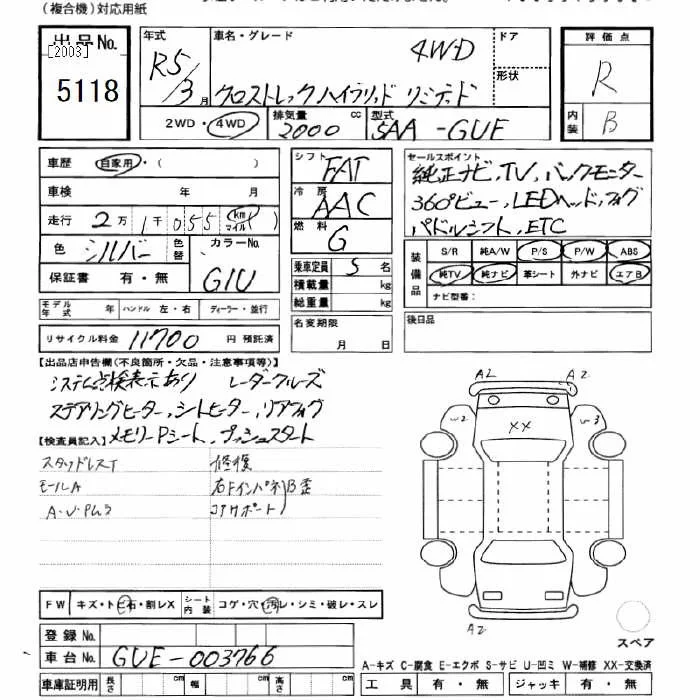 (複合機)対応用紙
出品No.
[2003]
5118
年式 R5/3月
車名・グレード 4WD
クロストレック ハイブリッド リミテッド
ドア
形状
評価点
R
内装 B
2WD・4WD
排気量 2000 cc
型式 5AA-GUE
車歴 自家用・( )
車検 年 月
走行 2万1千055 km マイル( )
色 シルバー 色替 カラーNo. G1U
保証書 有・無
モデル年式 年 ハンドル 左・右 ディーラー・並行
リサイクル料金 11700 円 預託済
シフト FAT
冷房 AAC
燃料 G
乗車定員 5 名
積載量 kg
総重量 kg
名変期限
月 日
セールスポイント
純正ナビ,TV,バックモニター
360°ビュー,LEDヘッド,フォグ
パドルシフト,ETC
装備品
S/R 純A/W P/S P/W ABS
純TV 純ナビ 革シート 外ナビ エアB
ナビ型番:
後日品
【出品店申告欄(不良箇所・欠品・注意事項等)】
システム点検表示あり レーダークルーズ
ステアリングヒーター,シートヒーター,リアフォグ
【検査員記入】メモリーPシート,プッシュスタート
スタッドレスT 修復
モールA 右Fインパネ B歪
コアサポート
A2 A2
W2 W3
XX
A2
スペア
FW キズ・トビ石・割レX シート内装 コゲ・穴・汚レ・シミ・破レ・スレ
登録No.
車台No. GUE-003766
車庫証明用 長さ cm 幅 cm 高さ cm
A-キズ C-腐食 E-エクボ S-サビ U-凹ミ W-補修 XX-交換済
工具 有・無 ジャッキ 有・無